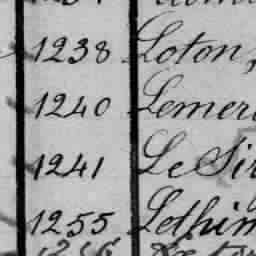 1238 Loton,
1240 Lemer
1241 Le Sir
1255 Lethim
1256